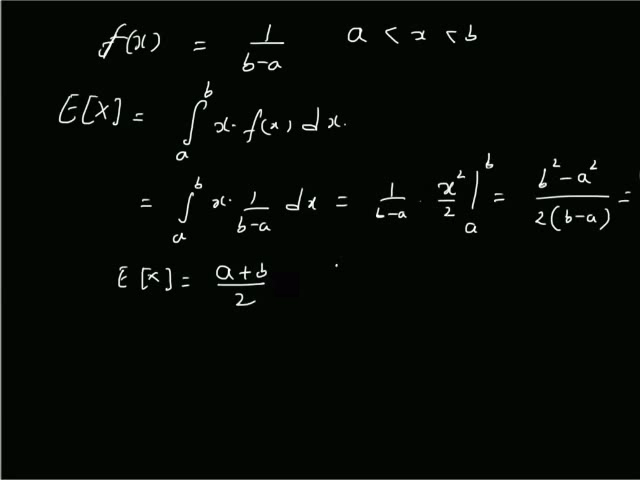 f(x) = 1/(b-a)   a < x < b
E[X] = ∫_a^b x. f(x) dx.
= ∫_a^b x. 1/(b-a) dx = 1/(b-a) . x²/2 |_a^b = (b²-a²)/(2(b-a)) =
E[x] = (a+b)/2